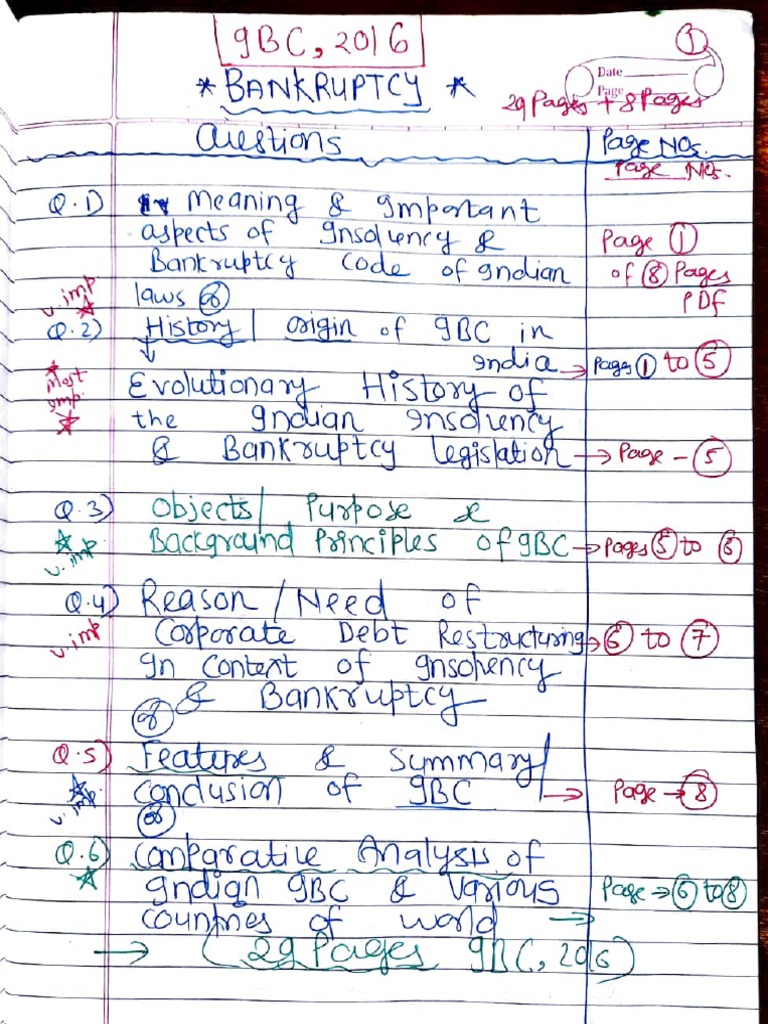 IBC, 2016
1
* BANKRUPTCY *
Date
Page
29 Pages + 8 Pages
Questions
Page NOs.
Page NOs.
Q.1) Meaning & Important
aspects of Insolvency & Page 1
Bankruptcy Code of Indian of 8 Pages
laws or PDF
v.imp
Q.2) History / origin of IBC in
India → Pages 1 to 5
Most Imp. Evolutionary History of
the Indian Insolvency
& Bankruptcy legislation → Page - 5
Q.3) Objects / Purpose &
v.imp Background Principles of IBC → Pages 5 to 6
Q.4) Reason / Need of
v.imp Corporate Debt Restructuring → 6 to 7
In Context of Insolvency
& Bankruptcy
or
Q.5) Features & Summary /
v.imp conclusion of IBC → Page → 8
or
Q.6) Comparative Analysis of
Indian IBC & various Page → 6 to 8
countries of world →
→ (29 Pages IBC, 2016)